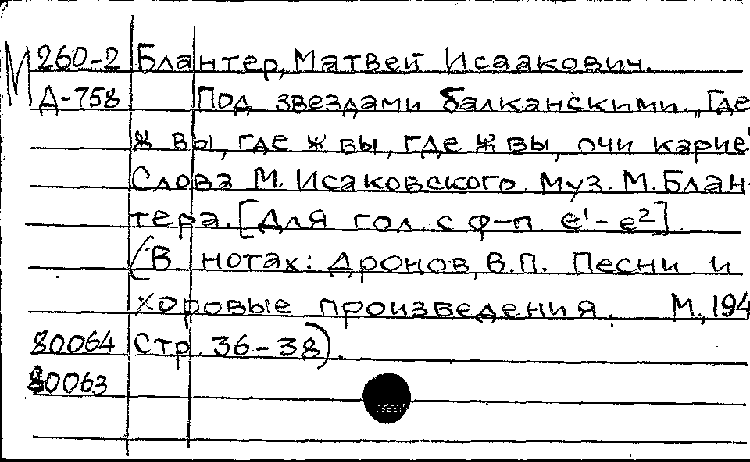 М 260-2 Блантер, Матвей Исаакович.
Д-758 Под звездами балканскими „Где
ж вы, где ж вы, где ж вы, очи карие"
Слова М. Исаковского. Муз. М. Блан-
тера. [Для гол. с ф-п e¹-e²].
(В нотах: Дронов, В.П. Песни и
хоровые произведения. М., 194
80064 Стр. 36-38).
80063